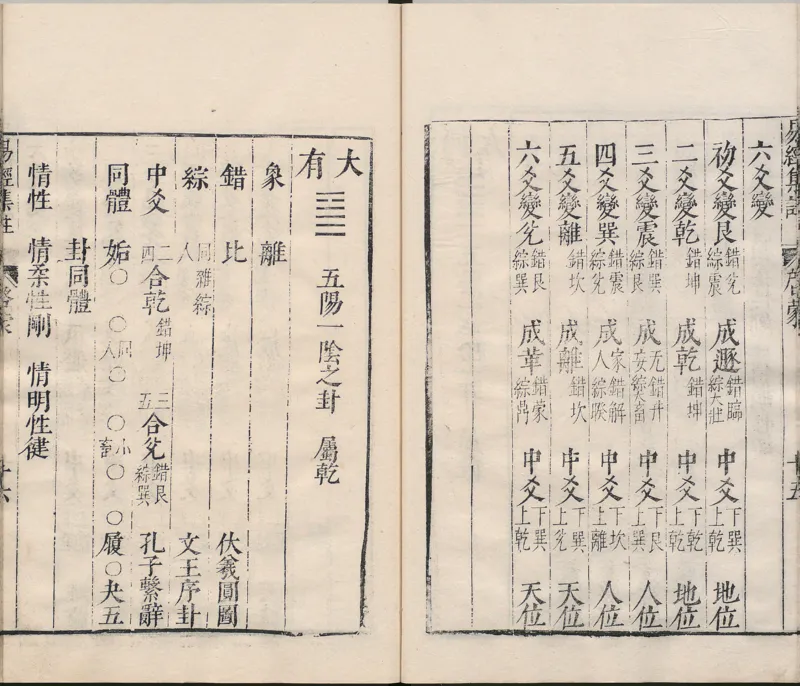 易經集註
啓蒙
十五
六爻變
初爻變艮 錯兌 綜震 成遯 錯臨 綜大壯 中爻 下巽 上乾 地位
二爻變乾 錯坤 成乾 錯坤 中爻 下乾 上乾 地位
三爻變震 錯巽 綜艮 成无妄 錯升 綜大畜 中爻 下艮 上巽 人位
四爻變巽 錯震 綜兌 成家人 錯解 綜睽 中爻 下坎 上離 人位
五爻變離 錯坎 成離 錯坎 中爻 下巽 上兌 天位
六爻變兌 錯艮 綜巽 成革 錯蒙 綜鼎 中爻 下巽 上乾 天位
大有 五陽一陰之卦 屬乾
象 離
錯 比 伏羲圓圖
綜 同人 雜綜 文王序卦
中爻 二四 合乾 錯坤 三五 合兌 錯艮 綜巽 孔子繫辭
同體 姤〇 〇同人〇 〇小畜〇 〇履〇夬五
卦同體
情性 情柔性剛 情明性健
易經集註
啓蒙
十六